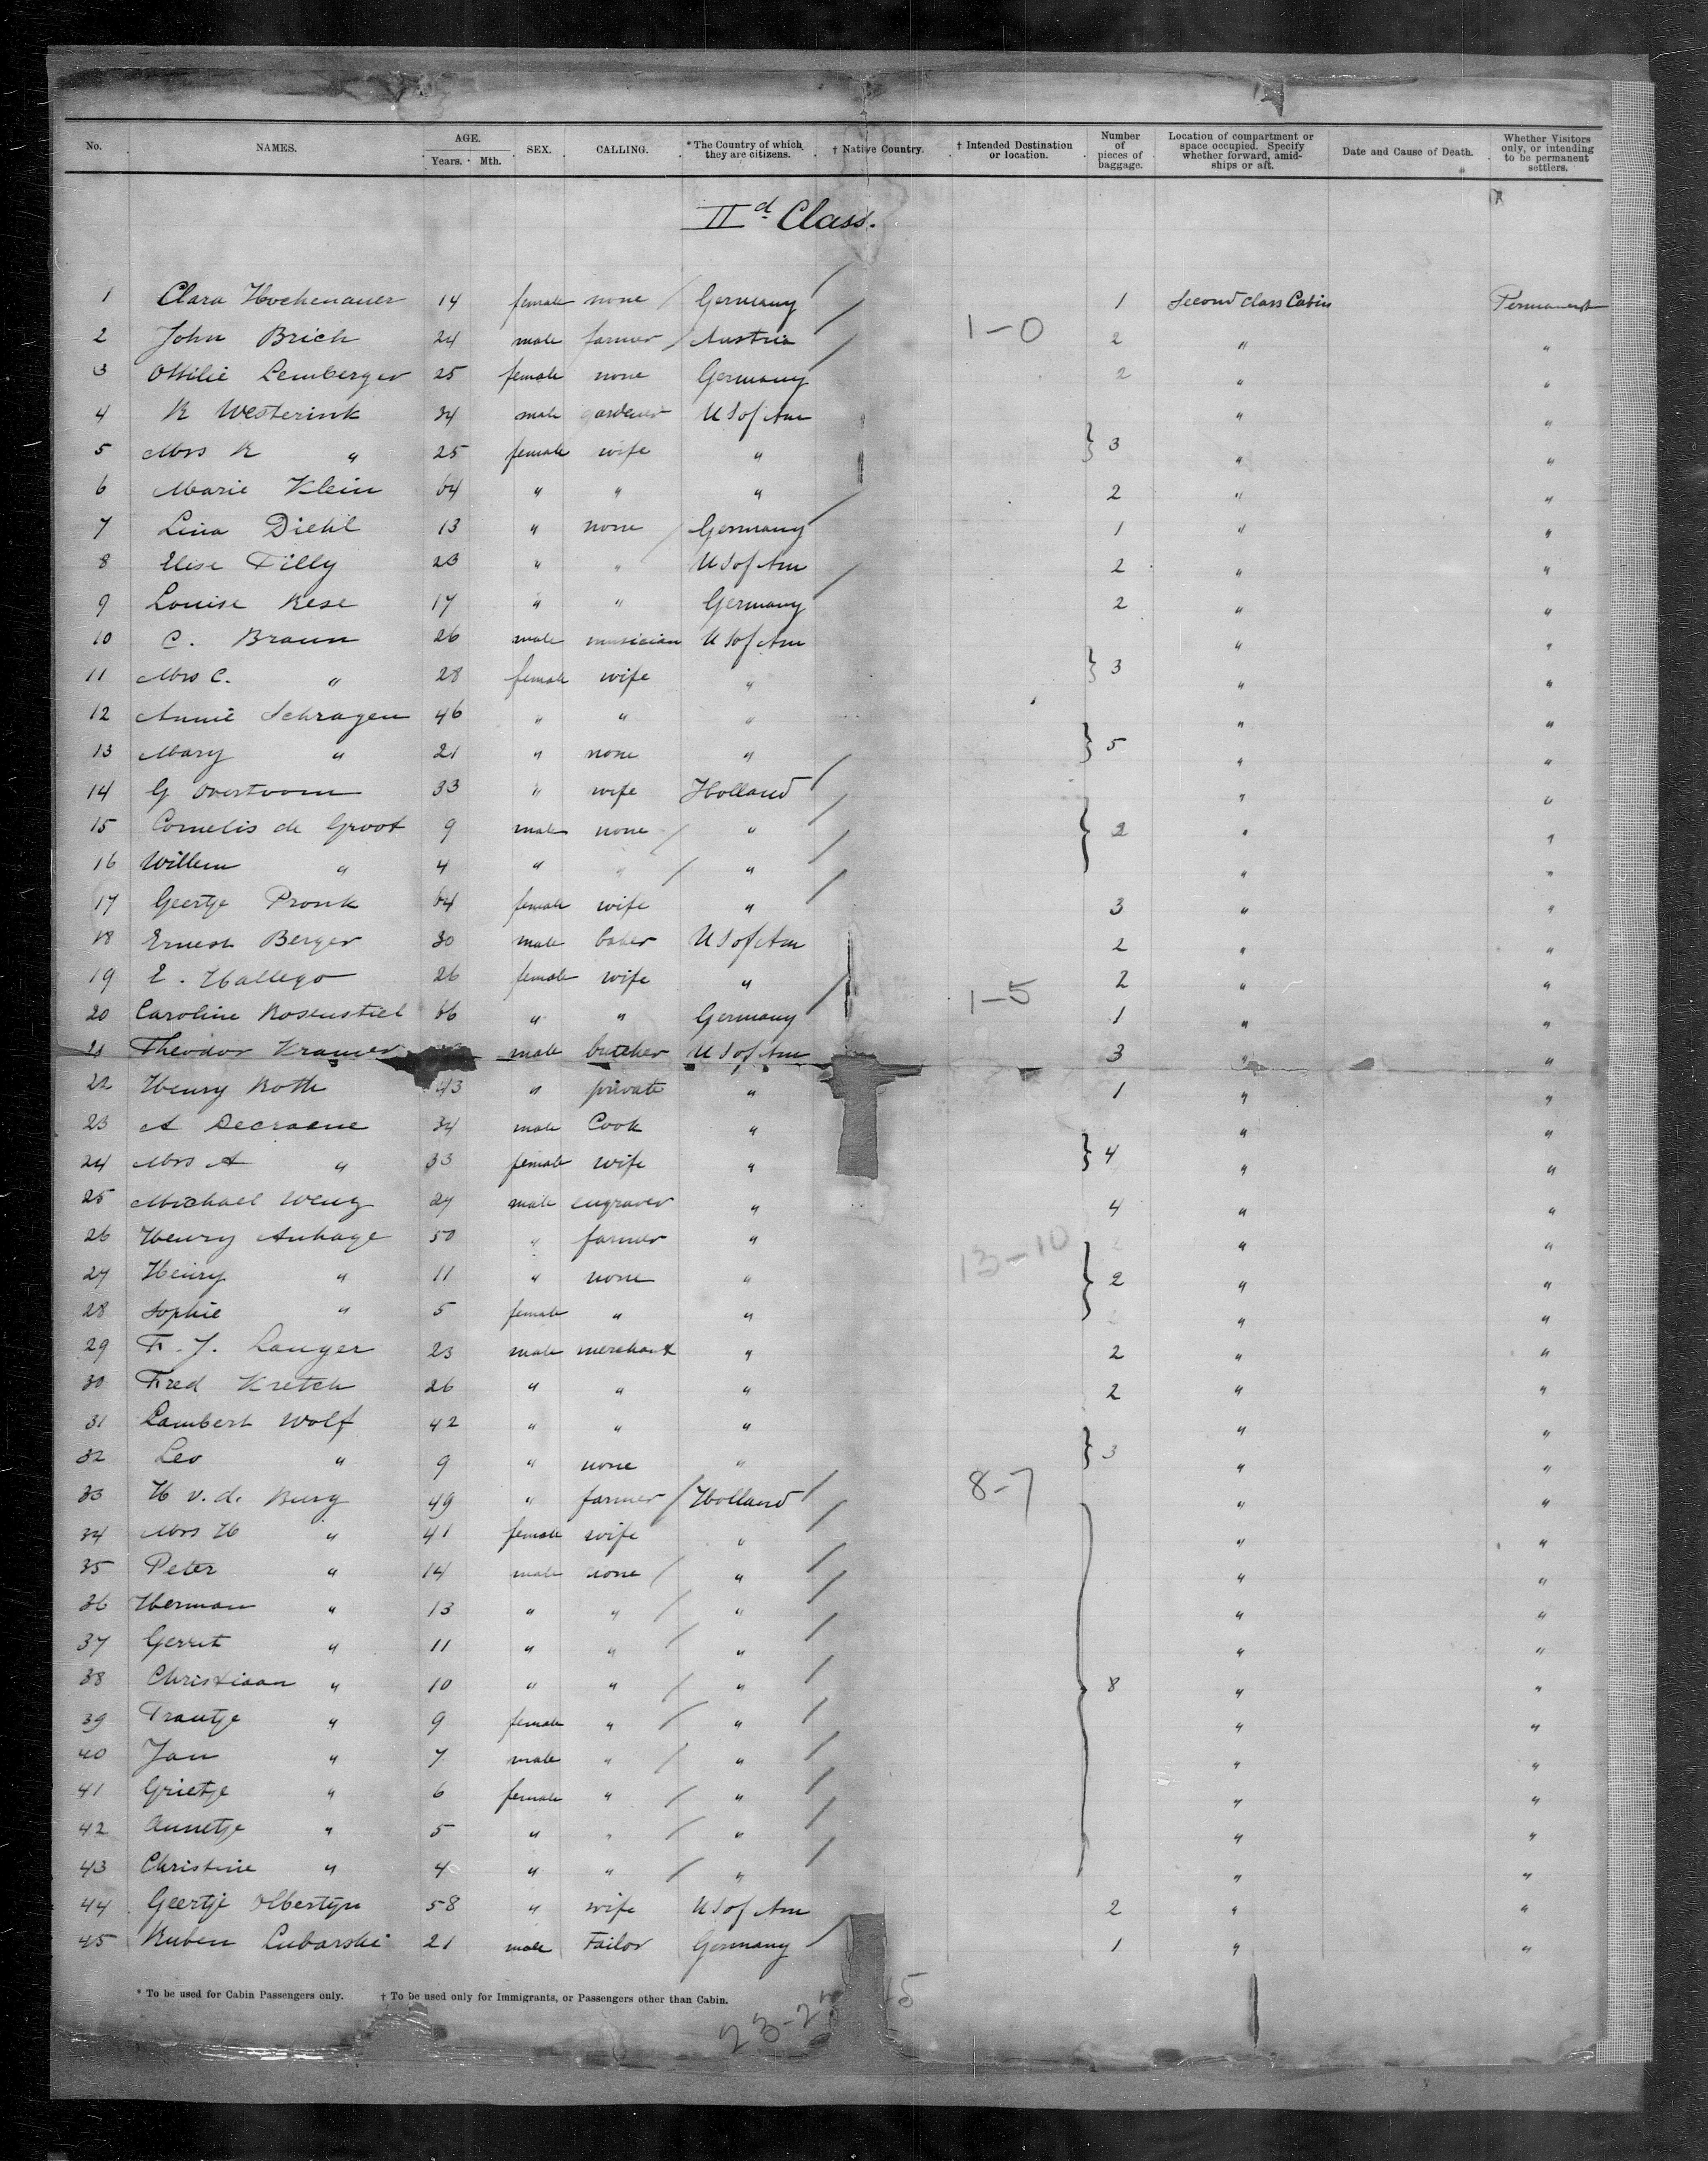 No. NAMES. AGE. Years. Mth. SEX. CALLING. * The Country of which they are citizens. † Native Country. † Intended Destination or location. Number of pieces of baggage. Location of compartment or space occupied. Specify whether forward, amidships or aft. Date and Cause of Death. Whether Visitors only, or intending to be permanent settlers.
IId Class.
1 Clara Hochenauer 14 female none / Germany / 1 Second Class Cabin Permanent
2 John Brich 24 male farmer / Austria / 1-0 2 " "
3 Ottilie Lemberger 25 female none Germany / 2 " "
4 K Westerink 34 male gardener U S of Am " "
5 Mrs K " 25 female wife " } 3 " "
6 Marie Klein 64 " " " 2 " "
7 Lina Diehl 13 " none / Germany / 1 " "
8 Elise Filly 23 " " / U S of Am 2 " "
9 Louise Rese 17 " " Germany / 2 " "
10 C. Braun 26 male musician U S of Am " "
11 Mrs C. " 28 female wife " } 3 " "
12 Annie Schragen 46 " " " " "
13 Mary " 21 " none " } 5 " "
14 G Overtoom 33 " wife Holland / " "
15 Cornelis de Groot 9 male none / " / } 2 " "
16 Willem " 4 " " / " / " "
17 Geertje Pronk 64 female wife " / 3 " "
18 Ernest Berger 30 male baker U S of Am 2 " "
19 E. Hallego 26 female wife " 1-5 2 " "
20 Caroline Rosenstiel 66 " " Germany / 1 " "
21 Theodor Kramer male butcher U S of Am 3 " "
22 Henry Roth 43 " private " 1 " "
23 A Decraene 34 male Cook " " "
24 Mrs A " 33 female wife " } 4 " "
25 Michael Weng 27 male engraver " 4 " "
26 Henry Anhage 50 " farmer " 13-10 " "
27 Henry " 11 " none " } 2 " "
28 Sophie " 5 female " " " "
29 F. J. Langer 23 male merchant " 2 " "
30 Fred Kretch 26 " " " 2 " "
31 Lambert Wolf 42 " " " " "
32 Leo " 9 " none " } 3 " "
33 H v. d. Burg 49 " farmer / Holland / 8-7 " "
34 Mrs H " 41 female wife " / " "
35 Peter " 14 male none / " / " "
36 Herman " 13 " " / " / " "
37 Gerrit " 11 " " / " / " "
38 Christiaan " 10 " " / " / } 8 " "
39 Trautje " 9 female " / " / " "
40 Jan " 7 male " / " / " "
41 Grietje " 6 female " / " / " "
42 Annetje " 5 " " / " / " "
43 Christine " 4 " " / " / " "
44 Geertje Olbertijn 58 " wife U S of Am 2 " "
45 Ruben Lubarski 21 male Tailor Germany / 1 " "
* To be used for Cabin Passengers only. † To be used only for Immigrants, or Passengers other than Cabin.